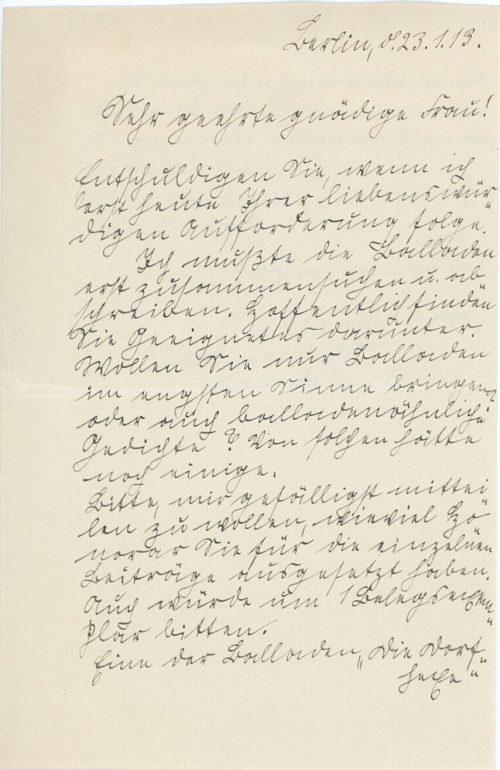 Berlin, d. 23.1.13.
Sehr geehrte gnädige Frau!
Entschuldigen Sie, wenn ich
erst heute Ihrer liebenswür-
digen Aufforderung folge.
Ich mußte die Balladen
erst zusammensuchen u. ab-
schreiben. Hoffentlich finden
Sie Geeignetes darunter.
Wollen Sie nur Balladen
im engsten Sinne bringen
oder auch balladenähnliche
Gedichte? Von solchen hätte
noch einige.
Bitte, mir gefälligst mittei-
len zu wollen, wieviel Ho-
norar Sie für die einzelnen
Beiträge ausgesetzt haben.
Auch würde um 1 Belegsexem-
plar bitten.
Eine der Balladen, „Die Dorf-
hexe"